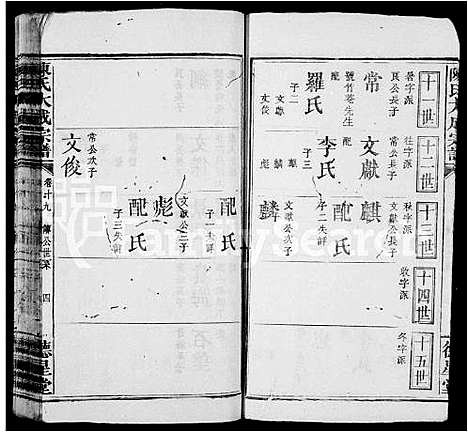 陳氏大成宗譜
十一世
暑字派
艮公長子
常
號竹菴先生
羅氏
子二
文獻
文俊
十二世
往字派
常公長子
文獻
李氏
子三
麒
麟
彪
十三世
秋字派
文獻公長子
麒
配氏
子二失詳
文獻公次子
麟
十四世
收字派
十五世
冬字派
德星堂
配氏
子一失詳
文獻公三子
彪
配氏
子三失詳
常公次子
文俊
陳氏大成宗譜
卷廿九
公世系
四
德星堂
FamilySearch